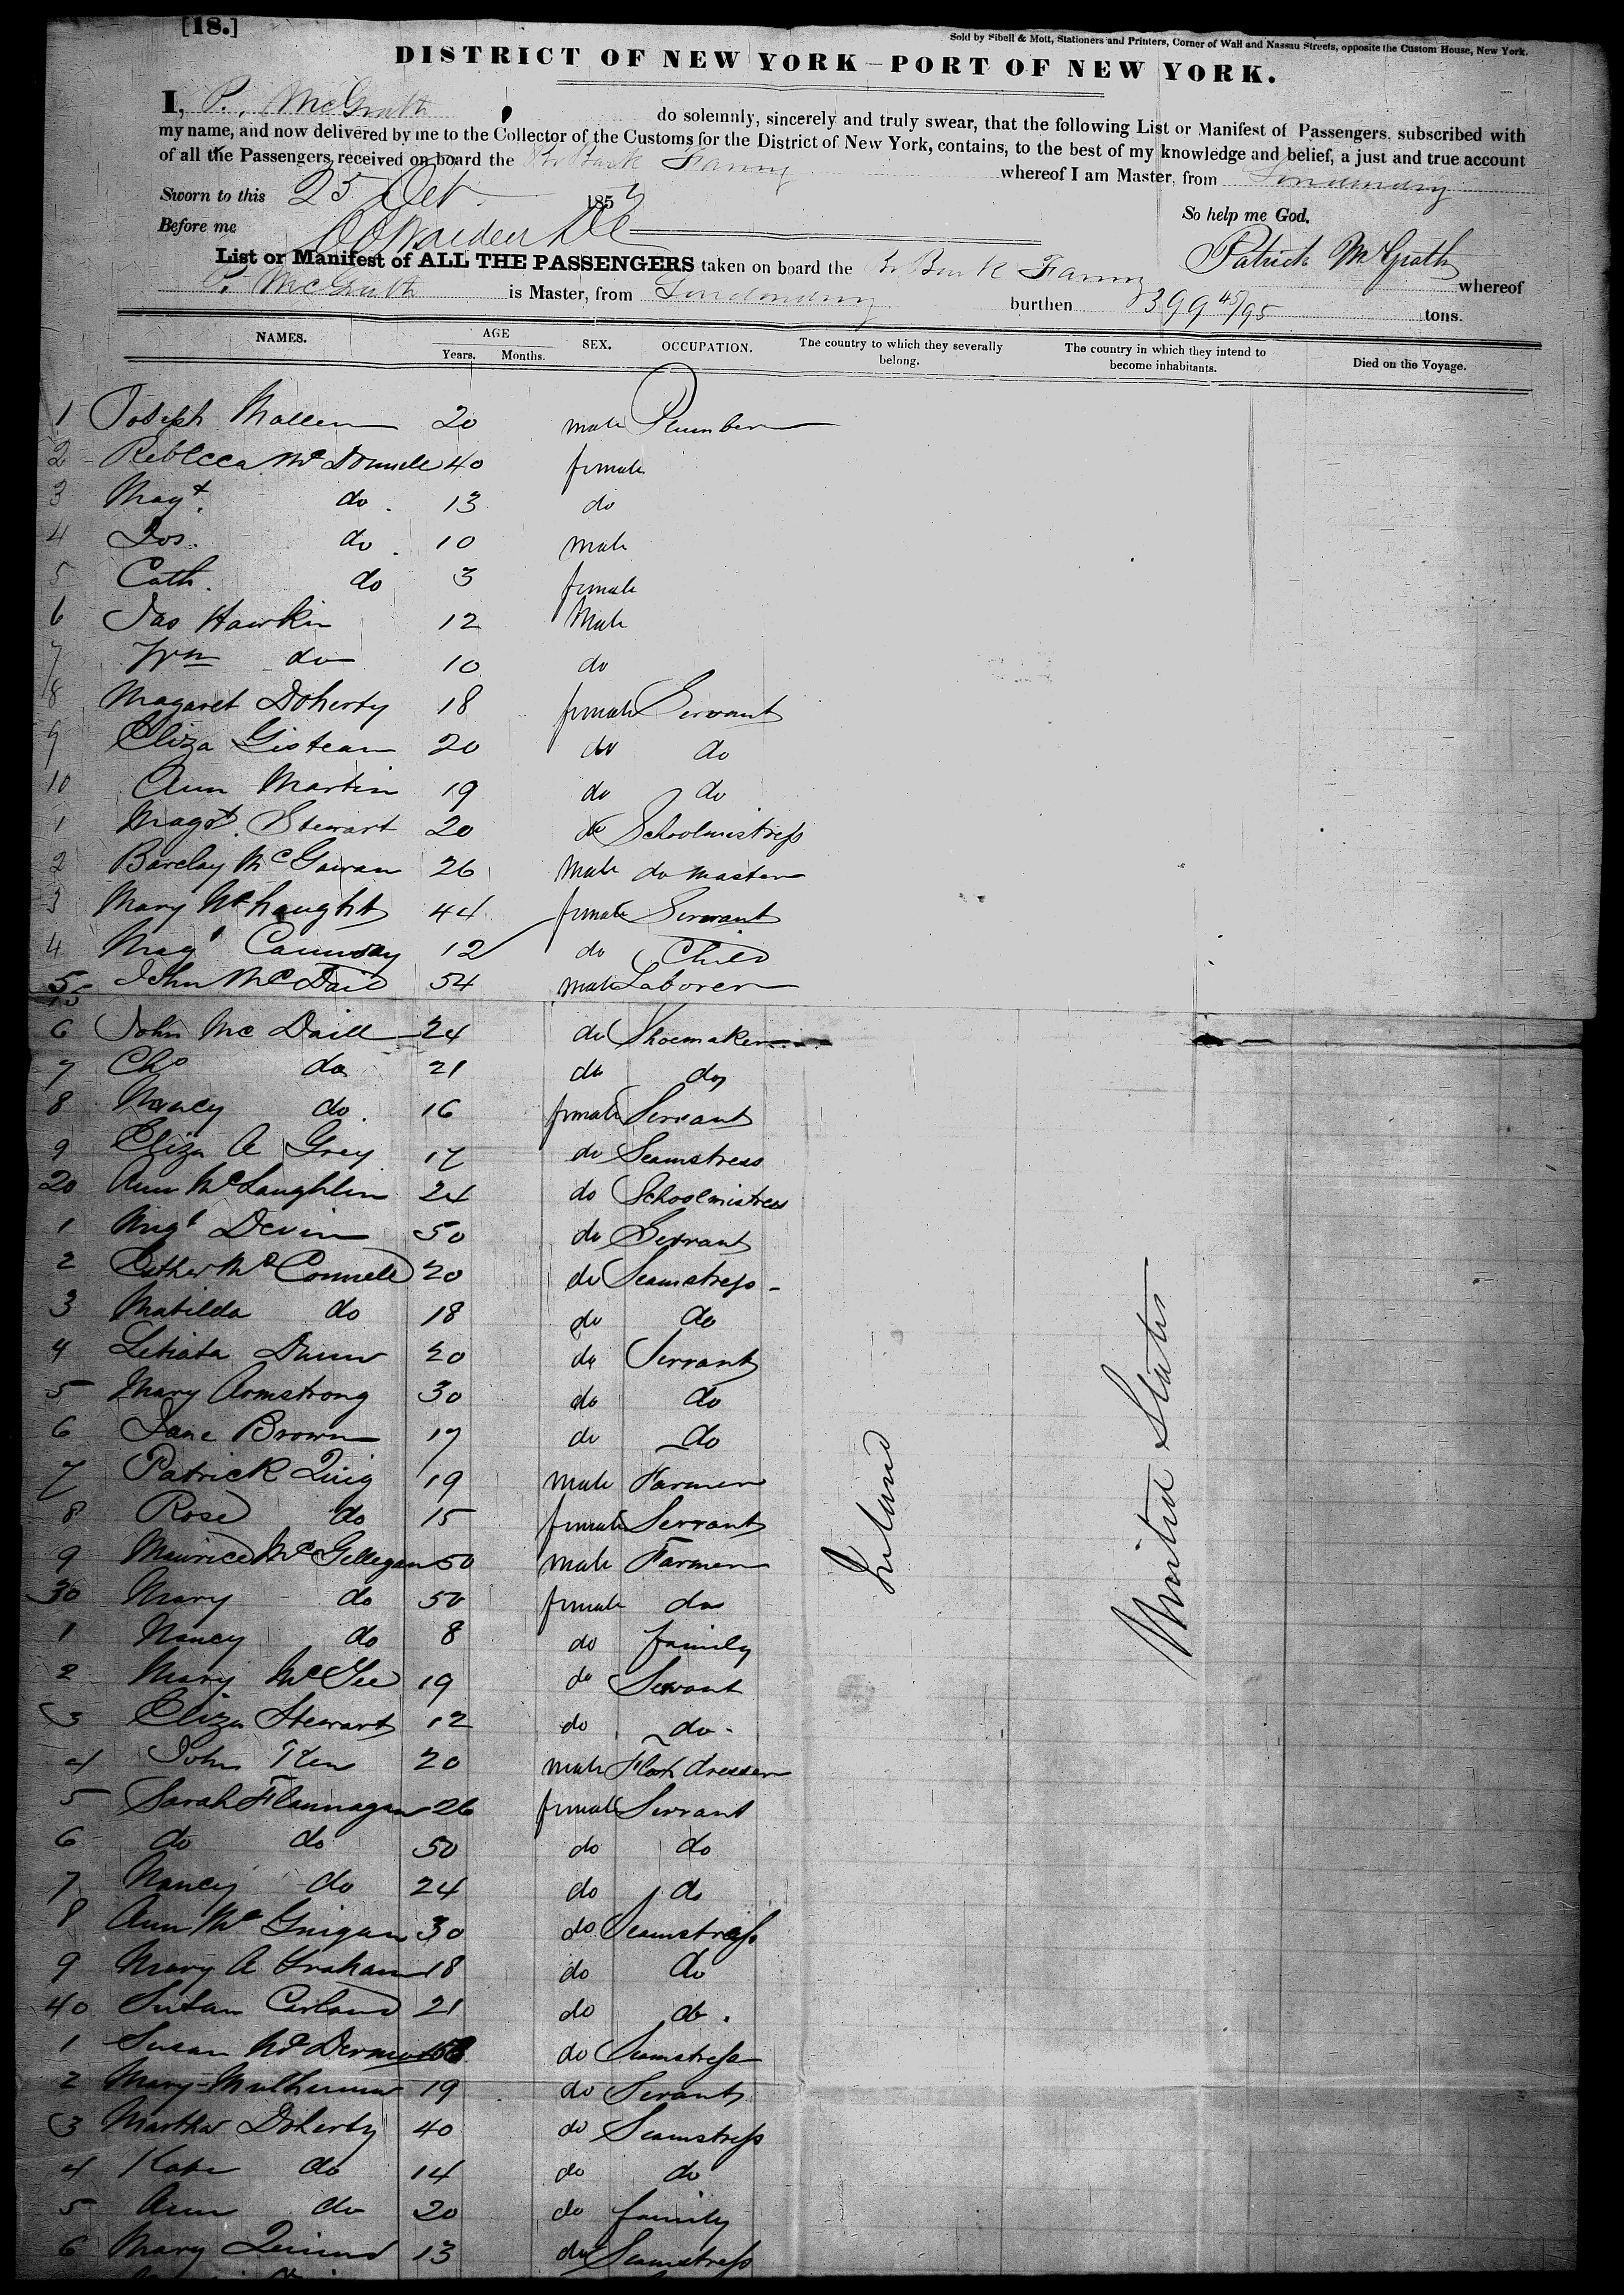 [18.]
Sold by Sibell & Mott, Stationers and Printers, Corner of Wall and Nassau Streets, opposite the Custom House, New York.
DISTRICT OF NEW YORK—PORT OF NEW YORK.
I, P. McGrath do solemnly, sincerely and truly swear, that the following List or Manifest of Passengers, subscribed with
my name, and now delivered by me to the Collector of the Customs for the District of New York, contains, to the best of my knowledge and belief, a just and true account
of all the Passengers received on board the Br Bark Fanny whereof I am Master, from Londonderry
Sworn to this 25 Oct 185
So help me God.
Before me
Patrick McGrath
List or Manifest of ALL THE PASSENGERS taken on board the Br Bark Fanny whereof
P. McGrath is Master, from Londonderry burthen 399 45/95 tons.
NAMES. AGE Years. Months. SEX. OCCUPATION. The country to which they severally belong. The country in which they intend to become inhabitants. Died on the Voyage.
1 Joseph Mallen 20 male Plumber
2 Rebecca McDonnell 40 female
3 Magt. do. 13 do
4 Jos. do. 10 male
5 Cath. do 3 female
6 Jas Hawkin 12 Male
7 Wm do 10 do
8 Magaret Doherty 18 female Servant
9 Eliza 20 do do
10 Ann Martin 19 do do
1 Magt. Stewart 20 do Schoolmistress
2 Barclay McGowan 26 Male do master
3 Mary McNaught 44 female Servant
4 Magt 12 do Child
5 John McDaid 54 male Laborer
15
6 John McDaill 24 do Shoemaker
7 Chs do 21 do do
8 Nancy do. 16 female Servant
9 Eliza A Grey 17 do Seamstress
20 Ann McLaughlin 24 do Schoolmistress
1 Mgt Devin 50 do Servant
2 Esther McConnell 20 do Seamstress
3 Matilda do 18 do do
4 Letitia Dunn 20 do Servant
5 Mary Armstrong 30 do do
6 Jane Brown 19 do do
7 Patrick Quig 19 male Farmer
8 Rose do 15 female Servant
9 Maurice McGellegan 50 male Farmer
30 Mary do 50 female do
1 Nancy do 8 do family
2 Mary McGee 19 do Servant
3 Eliza Stewart 12 do do
4 John 20 male Flax dresser
5 Sarah Flannagan 26 female Servant
6 do do 50 do do
7 Nancy do 24 do do
8 Ann McGuigan 30 do Seamstress
9 Mary A Graham 18 do do
40 Susan Carland 21 do do.
1 Susan McDermot do Seamstress
2 Mary 19 do Servant
3 Martha Doherty 40 do Seamstress
4 Kate do 14 do do
5 Ann do 20 do family
6 Mary Quinn 13 do Seamstress
Ireland
United States